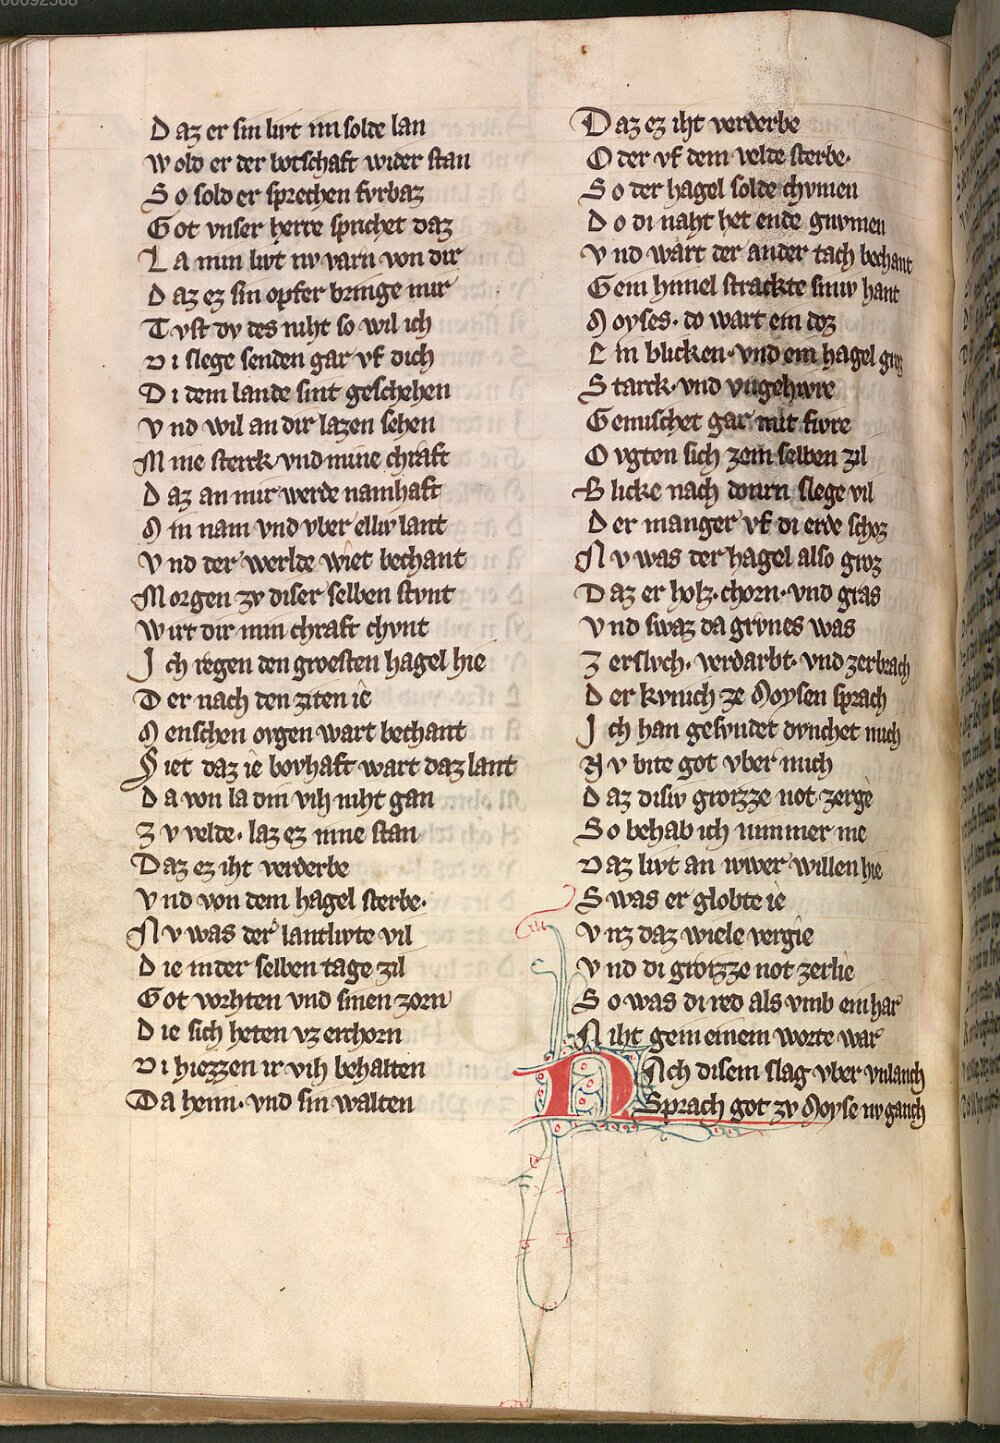 00092588
Daz er sin livt im solde lan
Wold er der botschaft wider stan
So sold er sprechen fvrbaz
Got vnser herre sprichet daz
La min livt nv varn von dir
Daz ez sin opfer bringe mir
Tvst dv des niht so wil ich
Di slege senden gar vf dich
Di dem lande sint geschehen
Vnd wil an dir lazen sehen
Mine sterck vnd mine chraft
Daz an mir werde namhaft
Min nam vnd vber elliv lant
Vnd der werlde wiet bechant
Morgen zv diser selben stvnt
Wirt dir min chraft chvnt
Ich regen den groesten hagel hie
Der nach den ziten ie
Menschen ovgen wart bechant
Siet daz ie bovhaft wart daz lant
Da von la din vih niht gan
Zv velde· laz ez inne stan
Daz ez iht verderbe
Vnd von dem hagel sterbe·
Nv was der lantlivte vil
Die in der selben tage zil
Got vorhten vnd sinen zorn
Die sich heten vz erchorn
Di hiezzen ir vih behalten
Da heim· vnd sin walten
Daz ez iht verderbe
Oder vf dem velde sterbe·
So der hagel solde chvmen
Do di naht het ende gnvmen
Vnd wart der ander tach bechant
Gein himel strackte siniv hant
Moyses· do wart ein doz
Ein blicken· vnd ein hagel groz
Starck· vnd vngehivre
Gemischet gar mit fivre
Ovgten sich zem selben zil
Blicke nach donrn slege vil
Der manger vf di erde schoz
Nv was der hagel also groz
Daz er holz· chorn· vnd gras
Vnd swaz da grvnes was
Zerslvch· verdarbt· vnd zerbrach
Der kvnich ze Moysen sprach
Ich han gesvndet dvnchet mich
Nv bite got vber mich
Daz disiv grozze not zerge
So behab ich nimmer me
Daz livt an iwer willen hie
Swas er globte ie
Vnz daz wiele vergie
Vnd di grozze not zerlie
So was di red als vmb ein har
Niht gein einem worte war
NAch disem slag vber vnlanch
Sprach got zv Moyse nv ganch